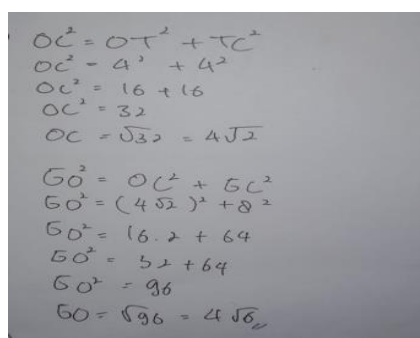 OC² = OT² + TC²
OC² = 4² + 4²
OC² = 16 + 16
OC² = 32
OC = √32 = 4√2
GO² = OC² + GC²
GO² = (4√2)² + 8²
GO² = 16.2 + 64
GO² = 32 + 64
GO² = 96
GO = √96 = 4√6